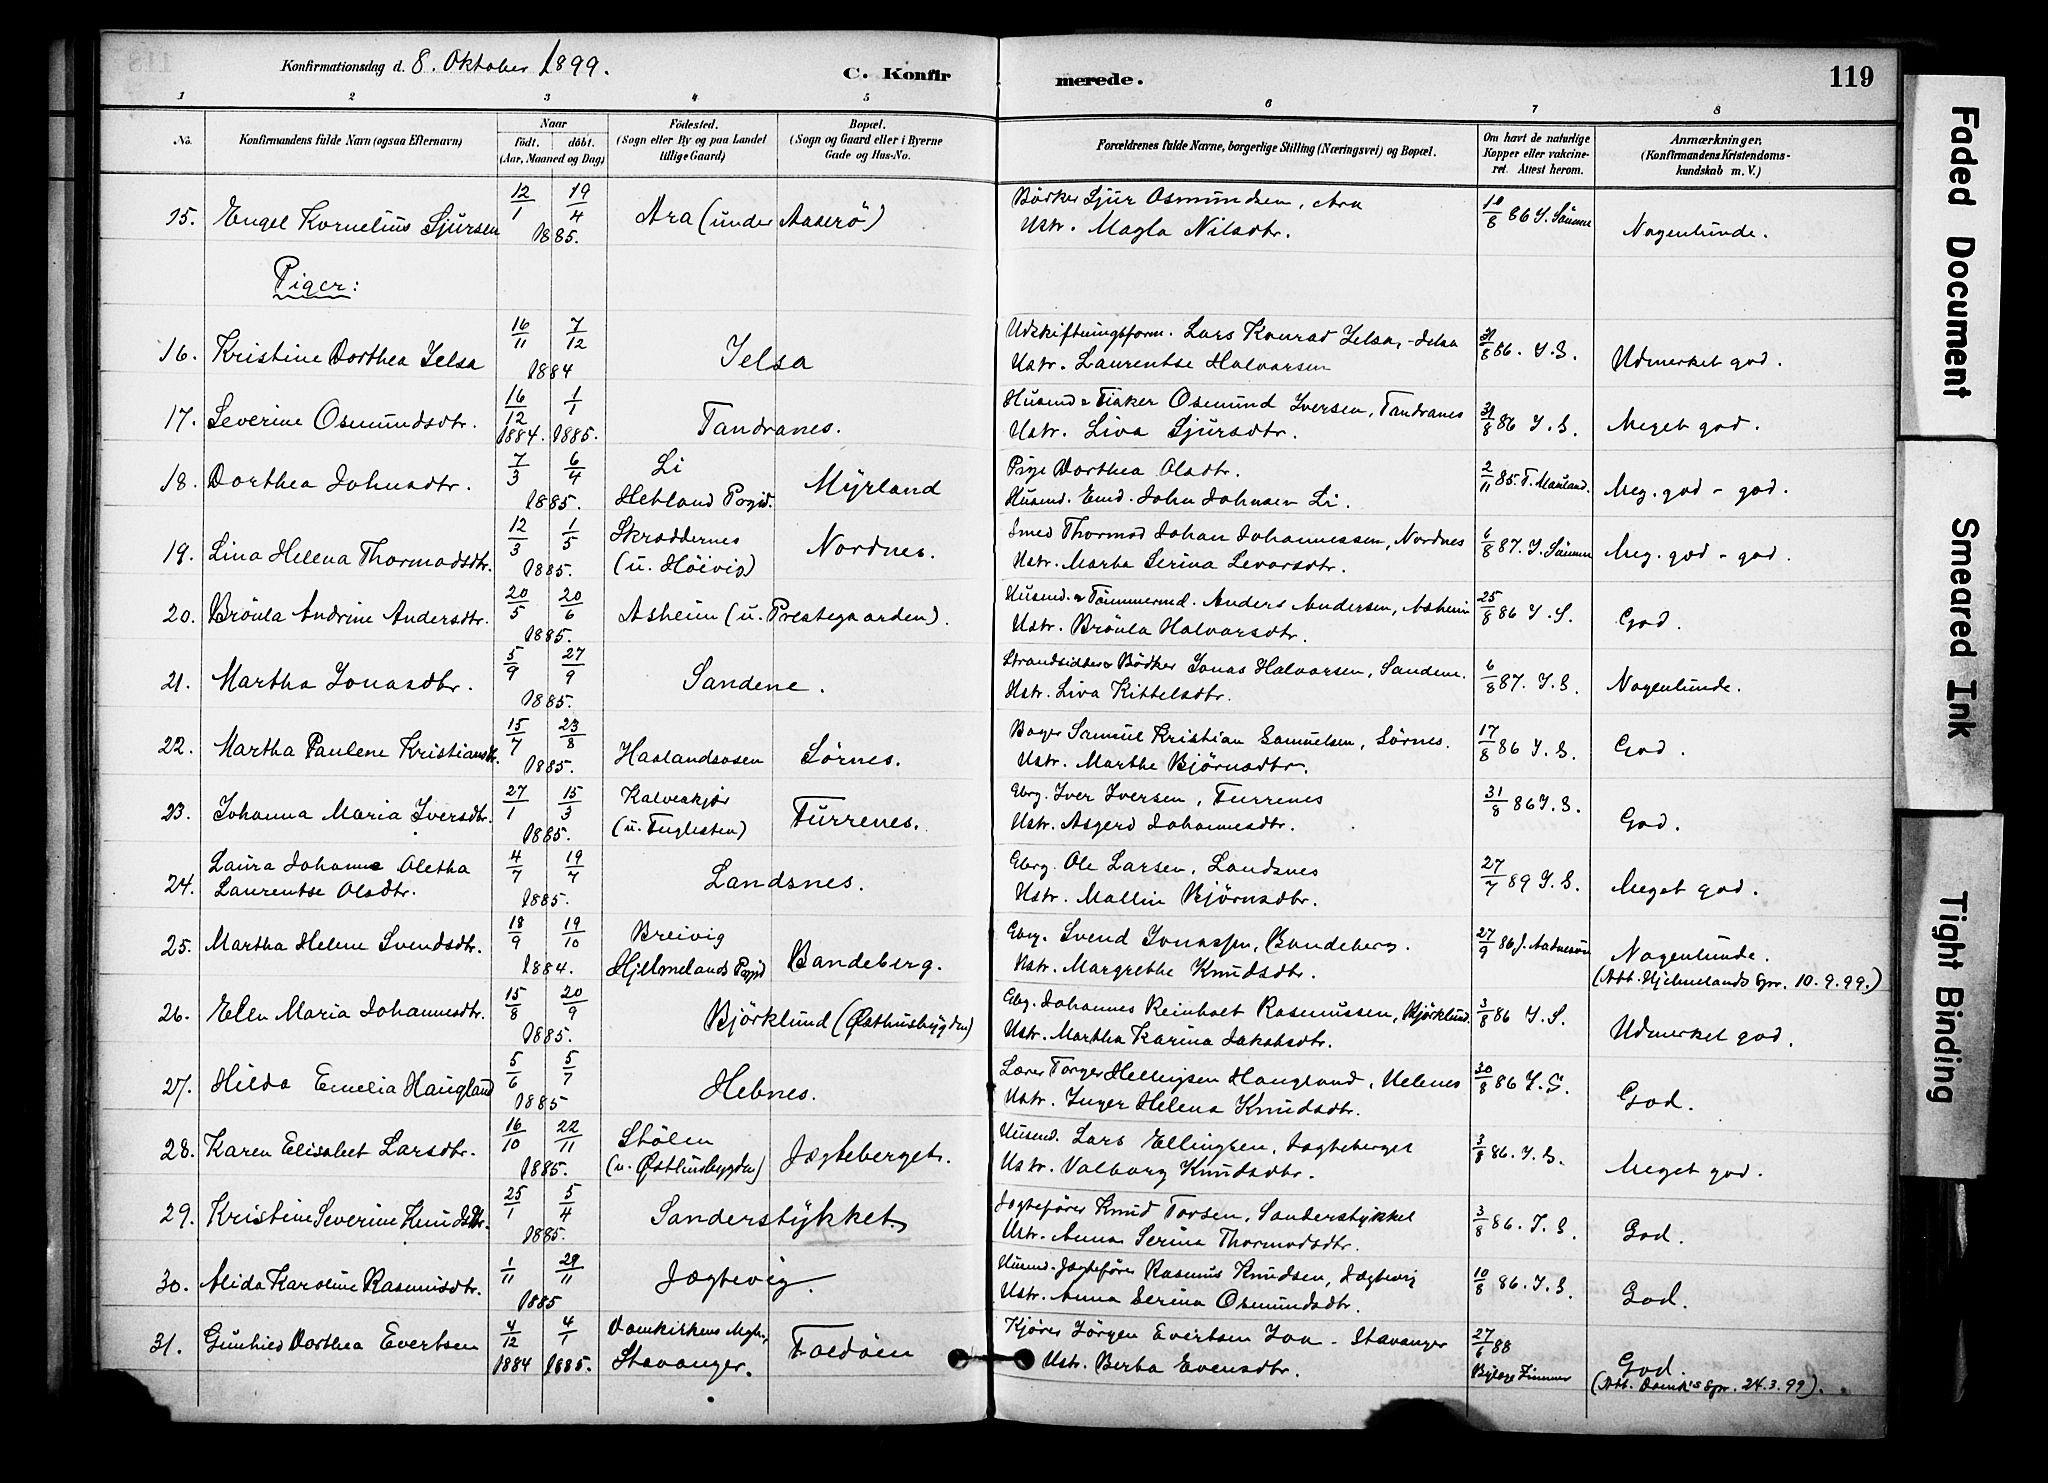 Konfirmationsdag d. 8. Oktober 1899.
C. Konfirmerede.
119
1 2 3 4 5 6 7 8
No.
Konfirmandens fulde Navn (ogsaa Efternavn)
Naar
født. døbt.
(Aar, Maaned og Dag)
Fødested.
(Sogn eller By og paa Landet
tillige Gaard)
Bopæl.
(Sogn og Gaard eller i Byerne
Gade og Hus-No.
Forældrenes fulde Navne, borgerlige Stilling (Næringsvei) og Bopæl.
Om havt de naturlige
Kopper eller vakcine-
ret. Attest herom.
Anmærkninger.
(Konfirmandens Kristendoms-
kundskab m. V.)
15. Engel Kornelius Sjursen 12/1 19/4 1885. Ara (under Aaserö)
Bödker Sjur Osmundsen, Ara
Ustr. Magla Nilsdtr.
10/8 86 I. Sömme
Nogenlunde.
Piger:
16. Kristine Dorthea Jelsa 16/11 7/12 1884 Jelsa
Udskiftningsform. Lars Konrad Jelsa, Jelsa
Ustr. Laurentse Halvorsen
31/8 86. I. S.
Udmerket god.
17. Severine Osmundsdtr. 16/12 1884. 1/1 1885. Tandranes.
Husmd & Fisker Osmund Iversen, Tandranes
Ustr. Liva Sjursdtr.
31/8 86 I. S.
Meget god.
18. Dorthea Johnsdtr. 7/3 6/4 1885. Li
Hebland Pgjd. Myrland
Pige Dorthea Olsdtr.
Husmd. Emd. John Johnsen Li.
2/11 85. T. Mauland.
Meg. god - god.
19. Lina Helena Thormodsdtr. 12/3 1/5 1885. Skreddernes
(u. Höivig) Nordnes.
Smed Thormod Johan Johannessen, Nordnes
Ustr. Marta Serina Sevarsdtr.
6/8 87. I. Sömme
Meg. god - god.
20. Bröula Andrine Andersdtr. 20/5 20/6 1885. Asheim (u. Prestegaarden).
Husmd. & Tömmermd. Anders Andersen, Asheim
Ustr. Bröula Halvorsdtr.
25/8 86 I. S.
God.
21. Martha Jonasdtr. 5/9 27/9 1885. Sandene.
Strandsidder & Bödker Jonas Halvorsen, Sandene.
Ustr. Liva Kittelsdtr.
6/8 87. I. S.
Nogenlunde.
22. Martha Paulene Kristiansdtr. 15/7 23/8 1885. Haslandsosen Sörnes.
Bager Samuel Kristian Samuelsen, Sörnes.
Ustr. Marthe Björnsdtr.
17/8 86 I. S.
God.
23. Johanna Maria Iversdtr. 27/1 15/3 1885. Kalveskjör
(u. Fuglesten) Furrenes.
Gbrg. Iver Iversen, Furrenes
Ustr. Asgerd Johannesdtr.
31/8 86 I. S.
God.
24. Laura Johanne Oletha
Laurentse Olsdtr. 4/7 19/7 1885. Landsnes.
Gbrg. Ole Larsen, Landsnes
Ustr. Mallin Björnsdtr.
27/7 89 I. S.
Meget god.
25. Martha Helene Svendsdtr. 18/9 19/10 1884. Breivig
Hjelmelands Pgjd Bandeberg.
Gbrg. Svend Jonassen, Bandeberg.
Ustr. Margrethe Knudsdtr.
27/9 86
Nogenlunde.
(Att. Hjelmelands Spr. 10.9.99.)
26. Ellen Maria Johannesdtr. 15/8 20/9 1885. Björklund (Østhusbygden)
Gbrg. Johannes Reinholt Rasmussen, Björklund
Ustr. Martha Karina Jakobsdtr.
3/8 86 I. S.
Udmerket god.
27. Hilda Emelia Haugland 5/6 5/7 1885 Hebnes.
Lærer Torger Hellingsen Haugland, Hebnes
Ustr. Inger Helena Knudsdtr.
30/8 86 I. S.
God.
28. Karen Elisabet Larsdtr. 16/10 22/11 1885. Stölen
(u. Østhusbygden) Jægteberget.
Husmd. Lars Ellingsen, Jægteberget
Ustr. Valborg Knudsdtr.
3/8 86. I. S.
Meget god.
29. Kristine Severine Knudsdtr. 25/1 5/4 1885. Sanderstykket
Jægtefører Knud Torsen, Sanderstykket
Ustr. Anna Serina Thormodsdtr.
3/8 86. I. S.
God.
30. Alida Karoline Rasmusdtr. 1/11 29/11 1885 Jægtevig.
Husmd. Jægtefører Rasmus Knudsen, Jægtevig
Ustr. Anna Serina Osmundsdtr.
10/8 86. I. S.
God.
31. Gunhild Dorthea Evertsen 4/12 1884 4/1 1885. Domkirkens Mgh.,
Stavanger. Foldöen
Kjörer Jörgen Evertsen Joa - Stavanger
Ustr. Berta Evensdtr.
27/6 88
Bylæge Zimmer
God.
(Att. Domk's Spr. 24.3.99).
Faded Document
Smeared Ink
Tight Binding